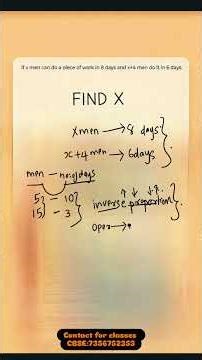 If x men can do a piece of work in 8 days and x+4 men do it in 6 days.
FIND X
x men → 8 days
x+4 men → 6 days
men - no: of days
5 - 10
15 - 3
inverse proportion
oper →
Contact for classes
CBSE:7356752353